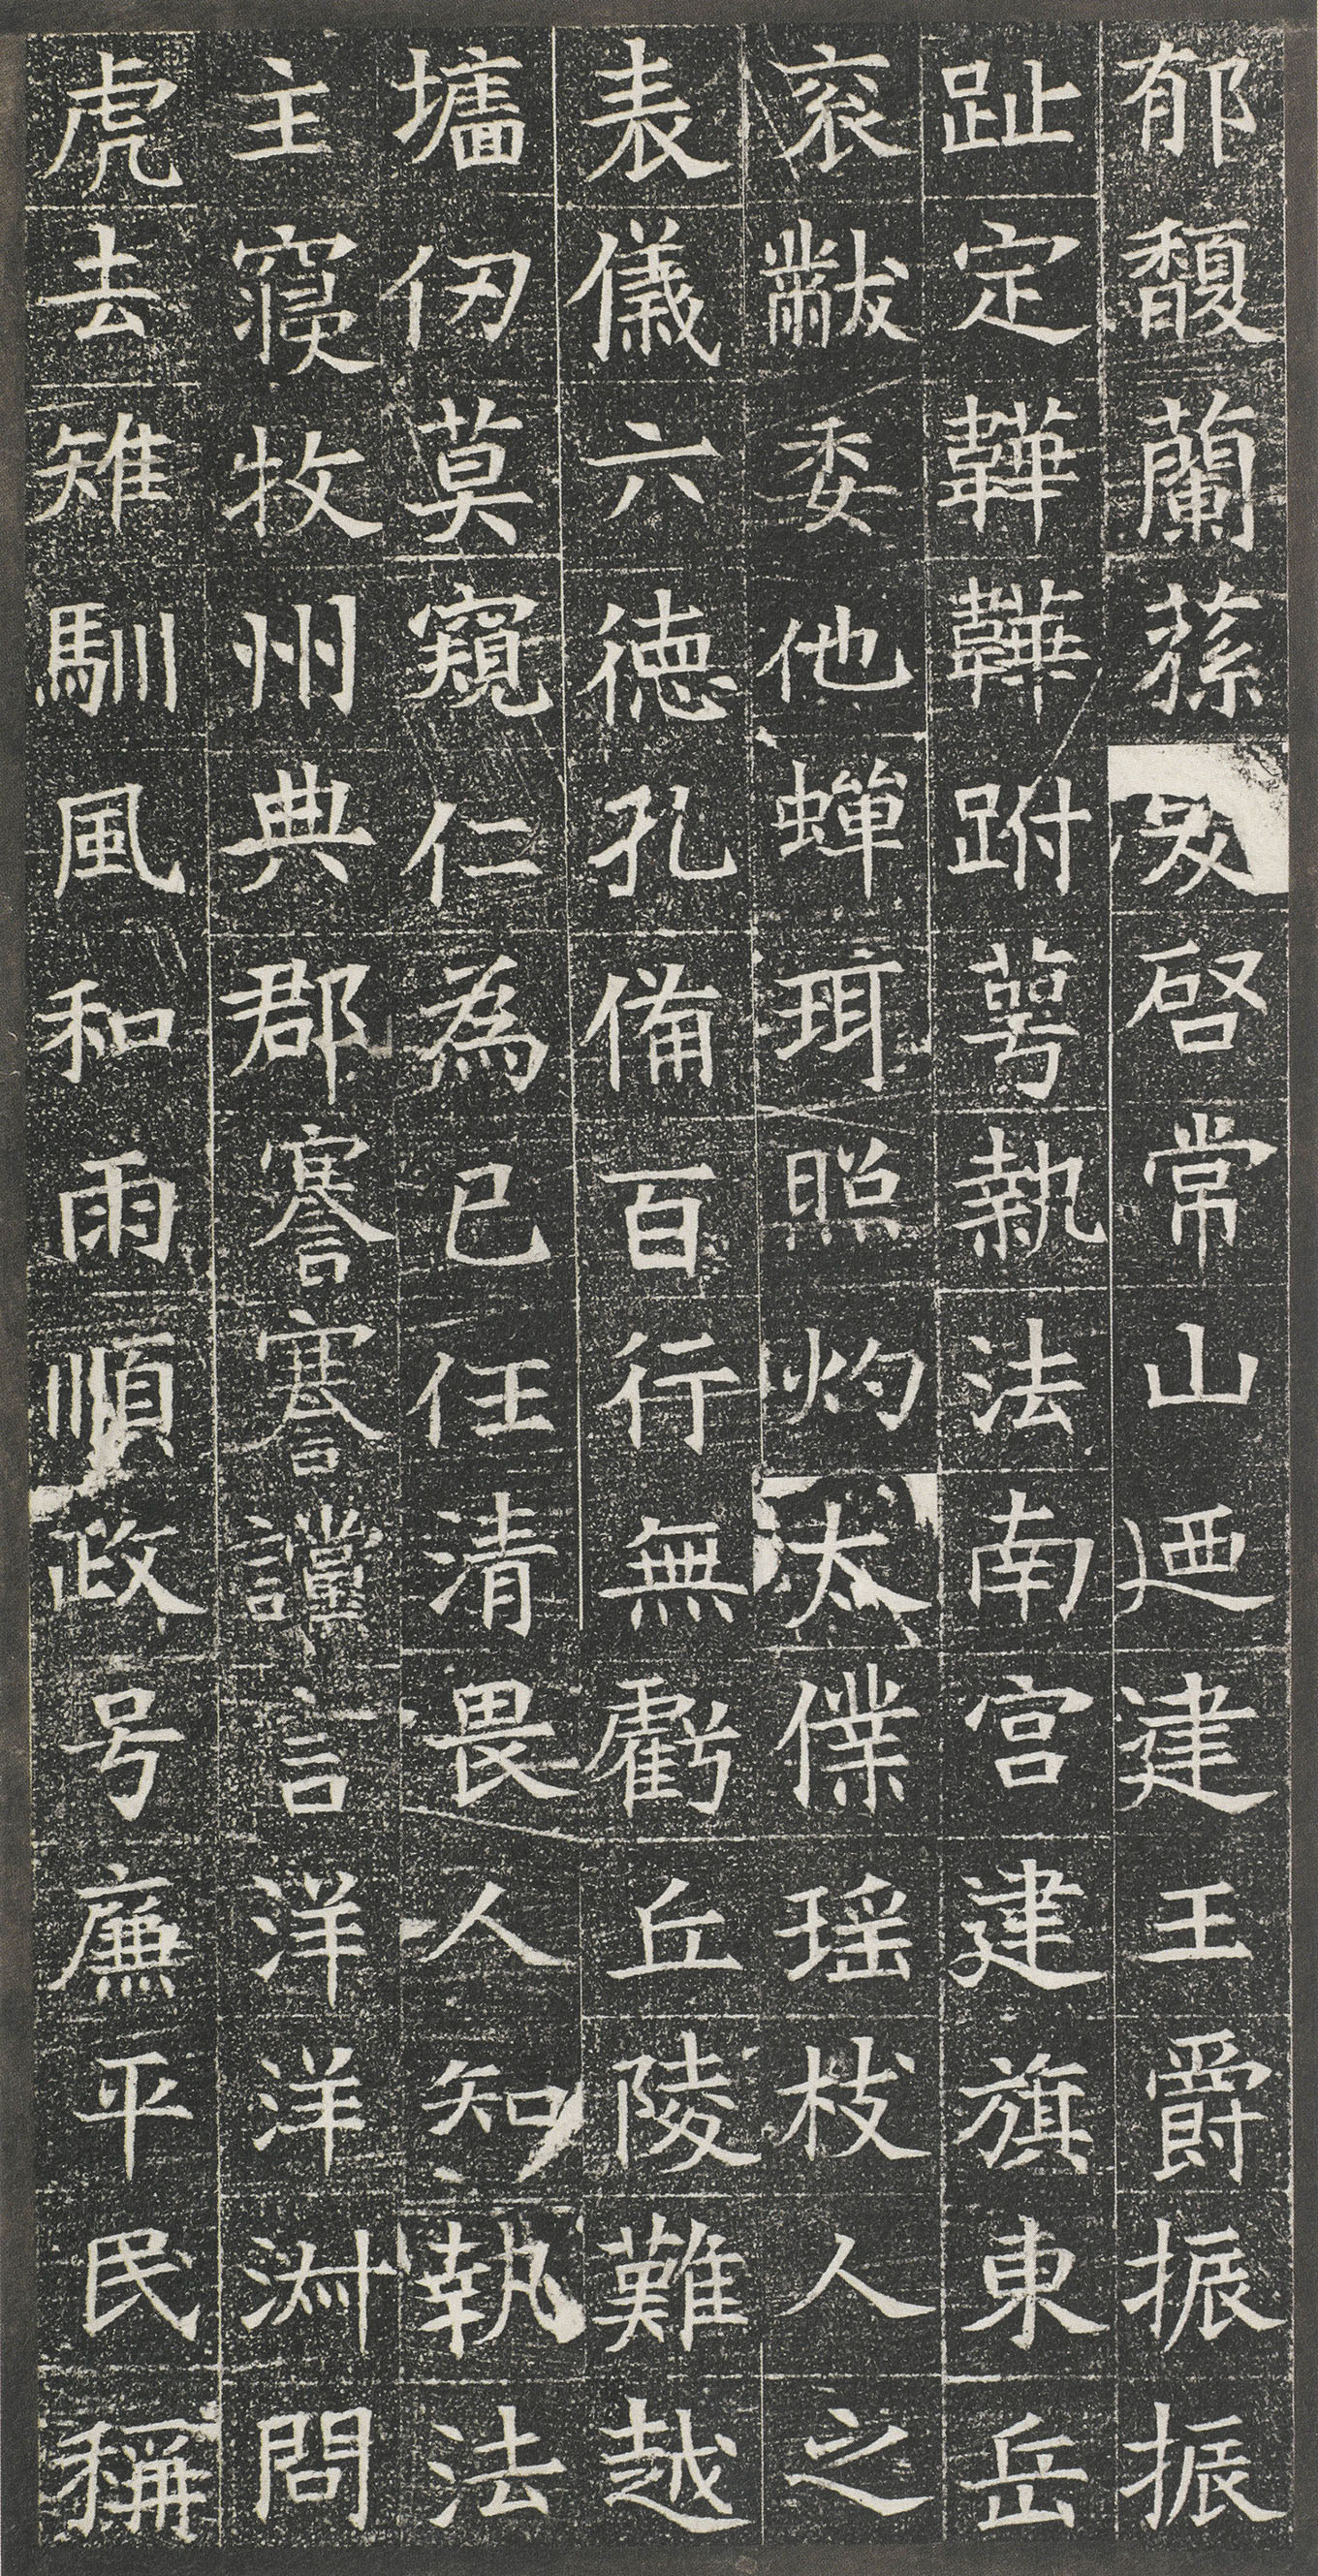 郁馥蘭蓀爰啓常山迺建王爵振振
趾定韡韡跗萼執法南宮建旗東岳
衮黻委他蟬珥照灼太僕瑶枝人之
表儀六徳孔備百行無虧丘陵難越
墻仞莫窺仁為己任清畏人知執法
主寢牧州典郡謇謇讜言洋洋淵問
虎去雉馴風和雨順政号廉平民稱